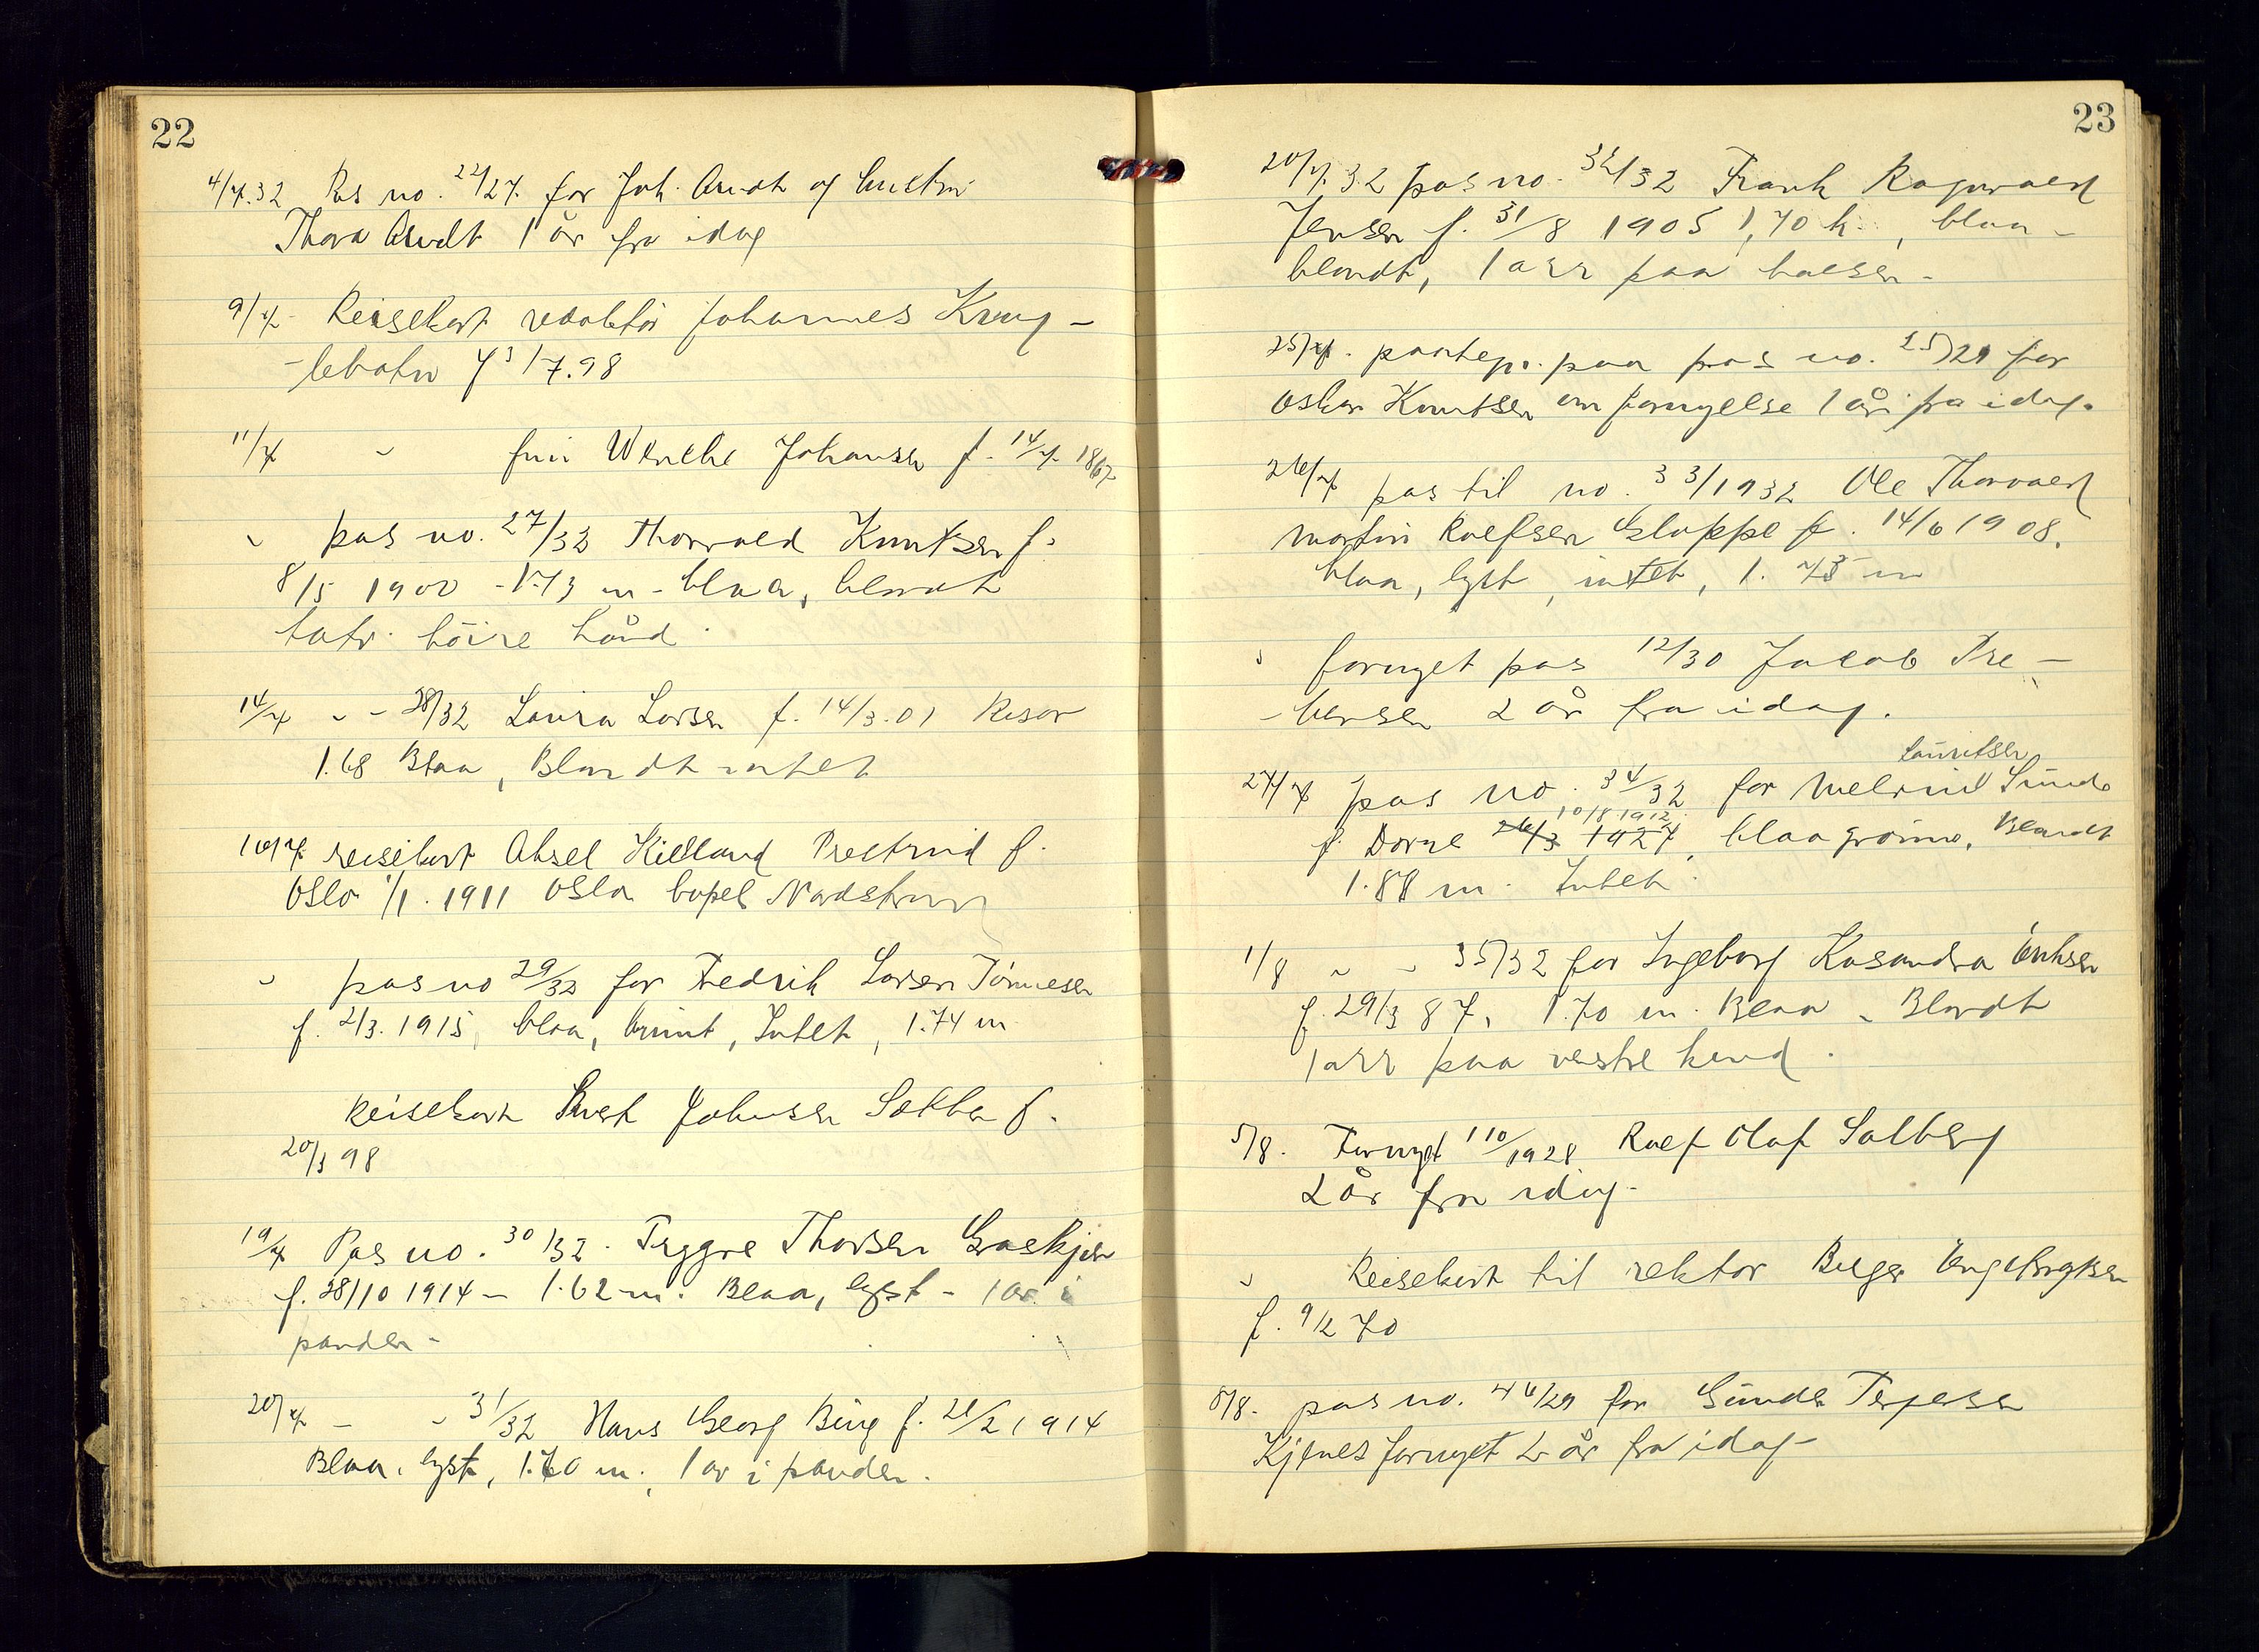 22
4/7.32 Pas no. 22/27. for Joh. Arndt og hustru
Thora Arndt 1 år fra idag
9/7 - Reisekort redaktör Johannes Krag-
-lebotn f 3/7.98
11/7 " fru Wenche Johansen f. 14/7 1867
" pas no. 27/32 Thorvald Knutsen f.
8/5 1900 - 1.73 m - blaa, blondt
tatv. höire hånd.
14/7 " - 28/32 Laura Larsen f. 14/3.01 Risør
1.68 Blaa, Blondt intet
16/7 reisekort Aksel Kielland Prestrud f.
Oslo 1/1. 1911 Oslo bopel Nordstrand
" pas no 29/32 for Fredrik Larsen Tönnesen
f. 2/3. 1915, blaa, brunt, Intet, 1.74 m
Reisekort Johnsen f.
20/3 98
19/7 Pas no. 30/32. Tryggve Thorsen Graskjær
f. 28/10 1914 - 1.62 m. Blaa, lyst - 1 ar i
panden -
20/7 - " 31/32 Hans Georg Bing f. 21/2 1914
Blaa, lyst, 1.70 m, 1 ar i panden.
23
20/7.32 pas no. 32/32 Frank Ragnvald
Jensen f. 31/8 1905 1,70 h., blaa -
blondt, 1 arr paa halsen -
25/7. paategn. paa pas no. 25/29 for
Oskar Knutsen om fornyelse 1 år fra idag.
26/7 pas til no. 33/1932 Ole Thorvald
Martin Rolfsen Gloppe f. 14/6 1908.
blaa, lyst, intet, 1.75 m
" fornyet pas 12/30 Jacob Pre-
-bensen 2 år fra idag.
Lauritsen
27/7 pas no. 34/32 for Sunde
10/8 1912
f. 26/3 1927, blaagrönne, Blondt
1.88 m. Intet.
1/8 " - 35/32 for Ingeborg Kasandra Eriksen
f. 29/3 87, 1.70 m. Blaa - Blondt
1 arr paa venstre haand.
5/8. Fornyet 110/1928 Rolf Olaf Solberg
2 år fra idag.
" Reisekort til rektor Birger Engebrigtsen
f. 9/2 70
8/8. pas no. 46/29 for Gunder Terjesen
Kjenes fornyet 2 år fra idag -